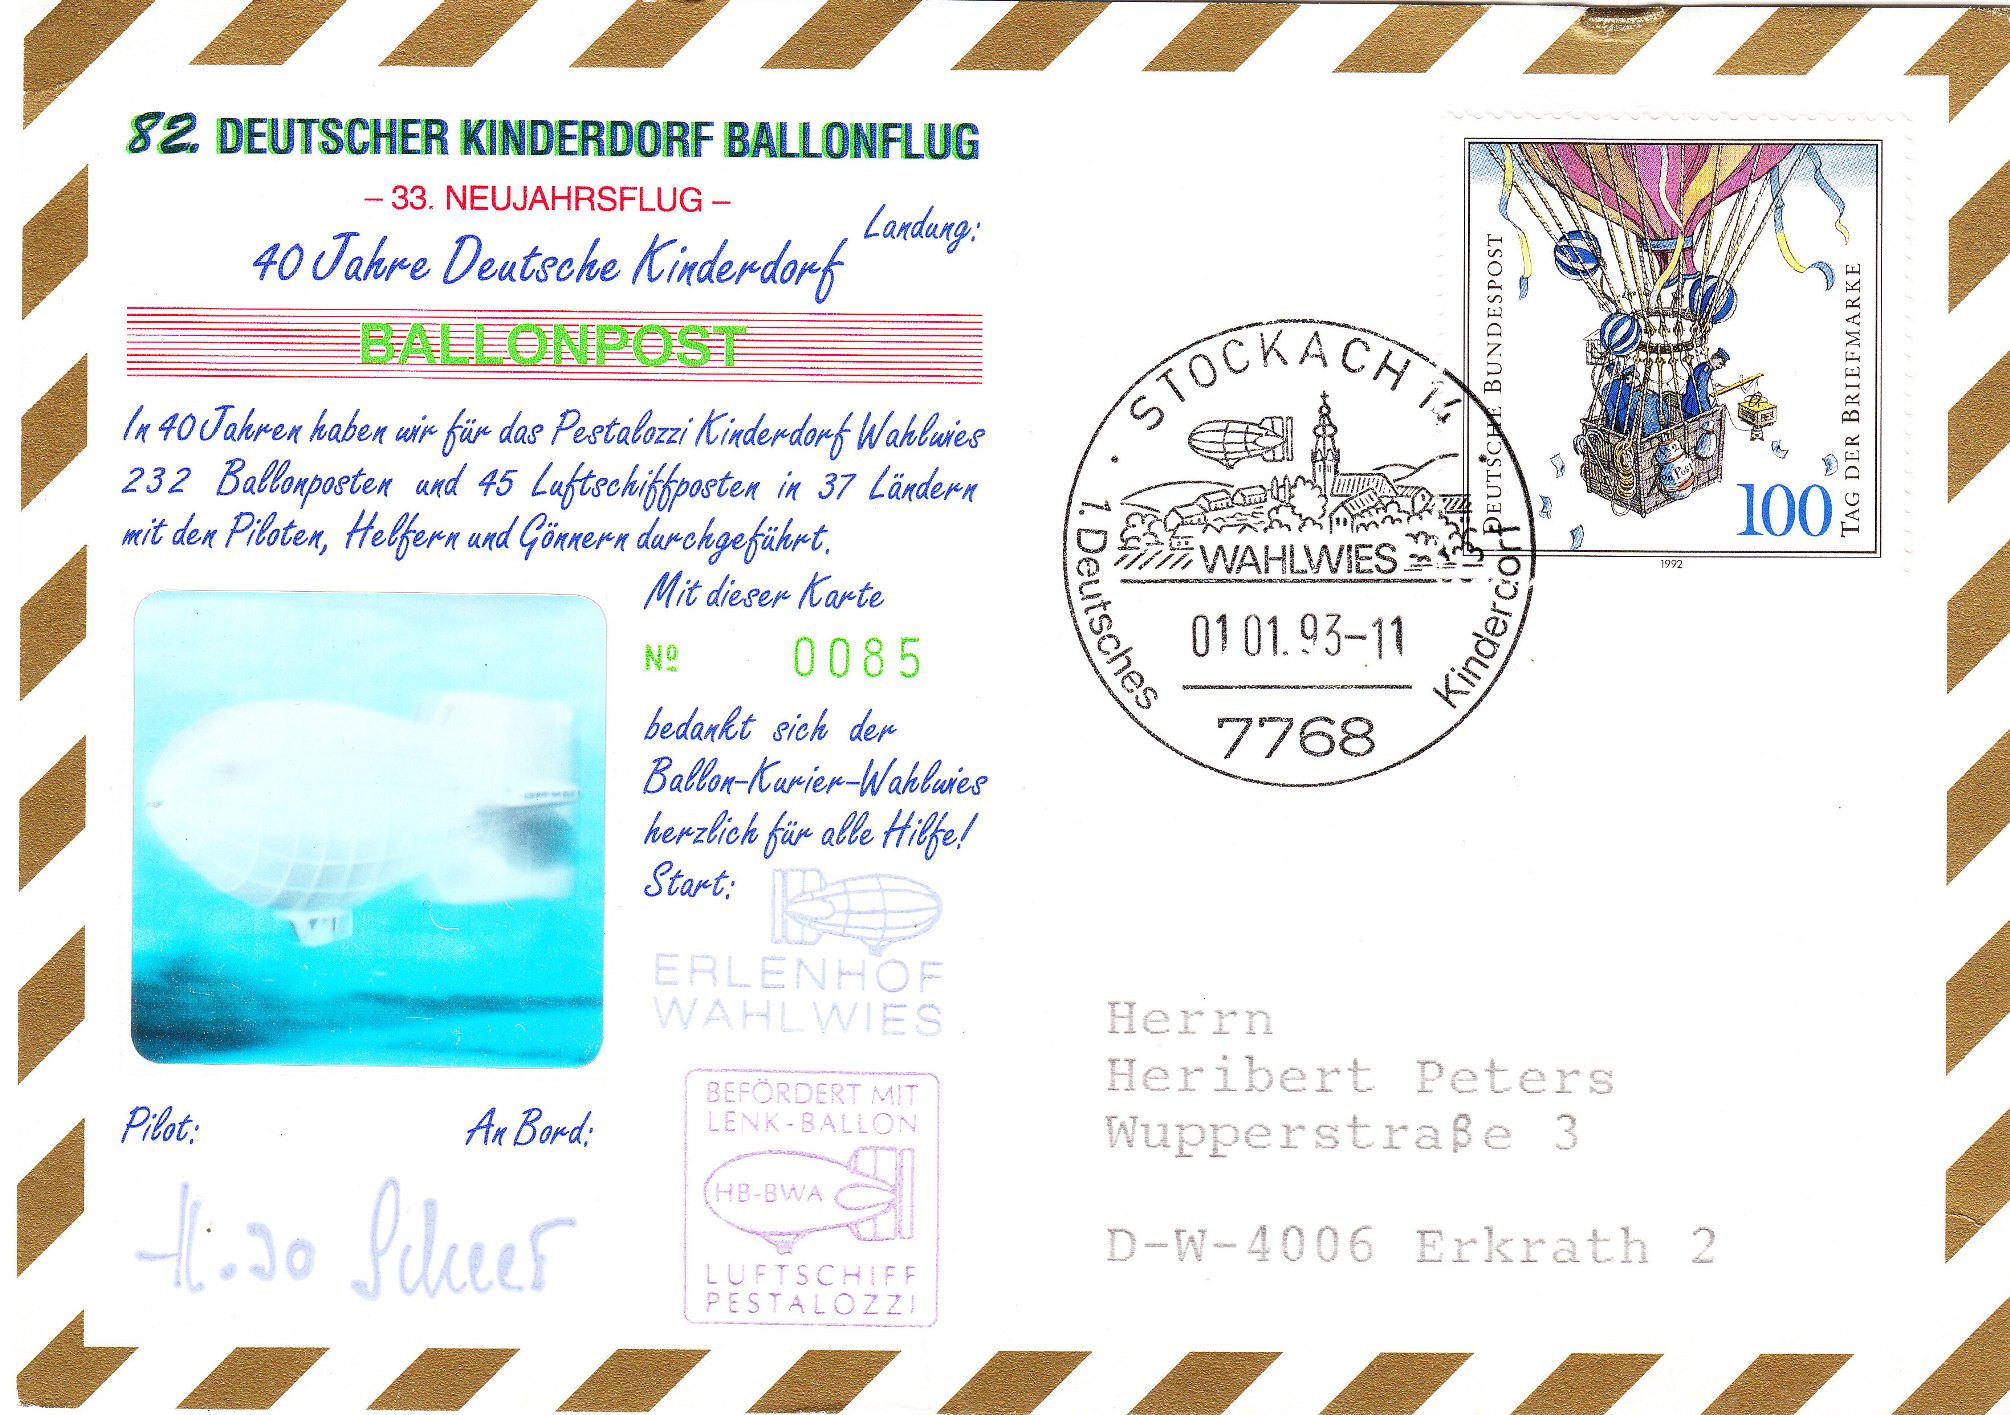 82. DEUTSCHER KINDERDORF BALLONFLUG
– 33. NEUJAHRSFLUG –
Landung:
40 Jahre Deutsche Kinderdorf
BALLONPOST
In 40 Jahren haben wir für das Pestalozzi Kinderdorf Wahlwies
232 Ballonposten und 45 Luftschiffposten in 37 Ländern
mit den Piloten, Helfern und Gönnern durchgeführt.
Mit dieser Karte
Nº 0085
bedankt sich der
Ballon-Kurier-Wahlwies
herzlich für alle Hilfe!
Start:
ERLENHOF
WAHLWIES
BEFÖRDERT MIT
LENK-BALLON
HB-BWA
LUFTSCHIFF
PESTALOZZI
Pilot:
An Bord:
DEUTSCHE BUNDESPOST
Post
100
TAG DER BRIEFMARKE
1992
STOCKACH 14
WAHLWIES
01.01.93-11
1. Deutsches Kinderdorf
7768
Herrn
Heribert Peters
Wupperstraße 3
D-W-4006 Erkrath 2